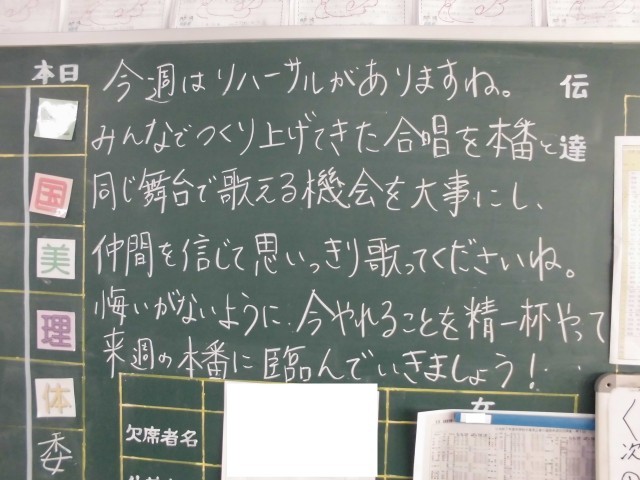 本日
伝達
今週はリハーサルがありますね。
みんなでつくり上げてきた合唱を本番と
同じ舞台で歌える機会を大事にし、
仲間を信じて思いっきり歌ってくださいね。
悔いがないように、今やれることを精一杯やって
来週の本番に臨んでいきましょう!
国
美
理
体
委
欠席者名